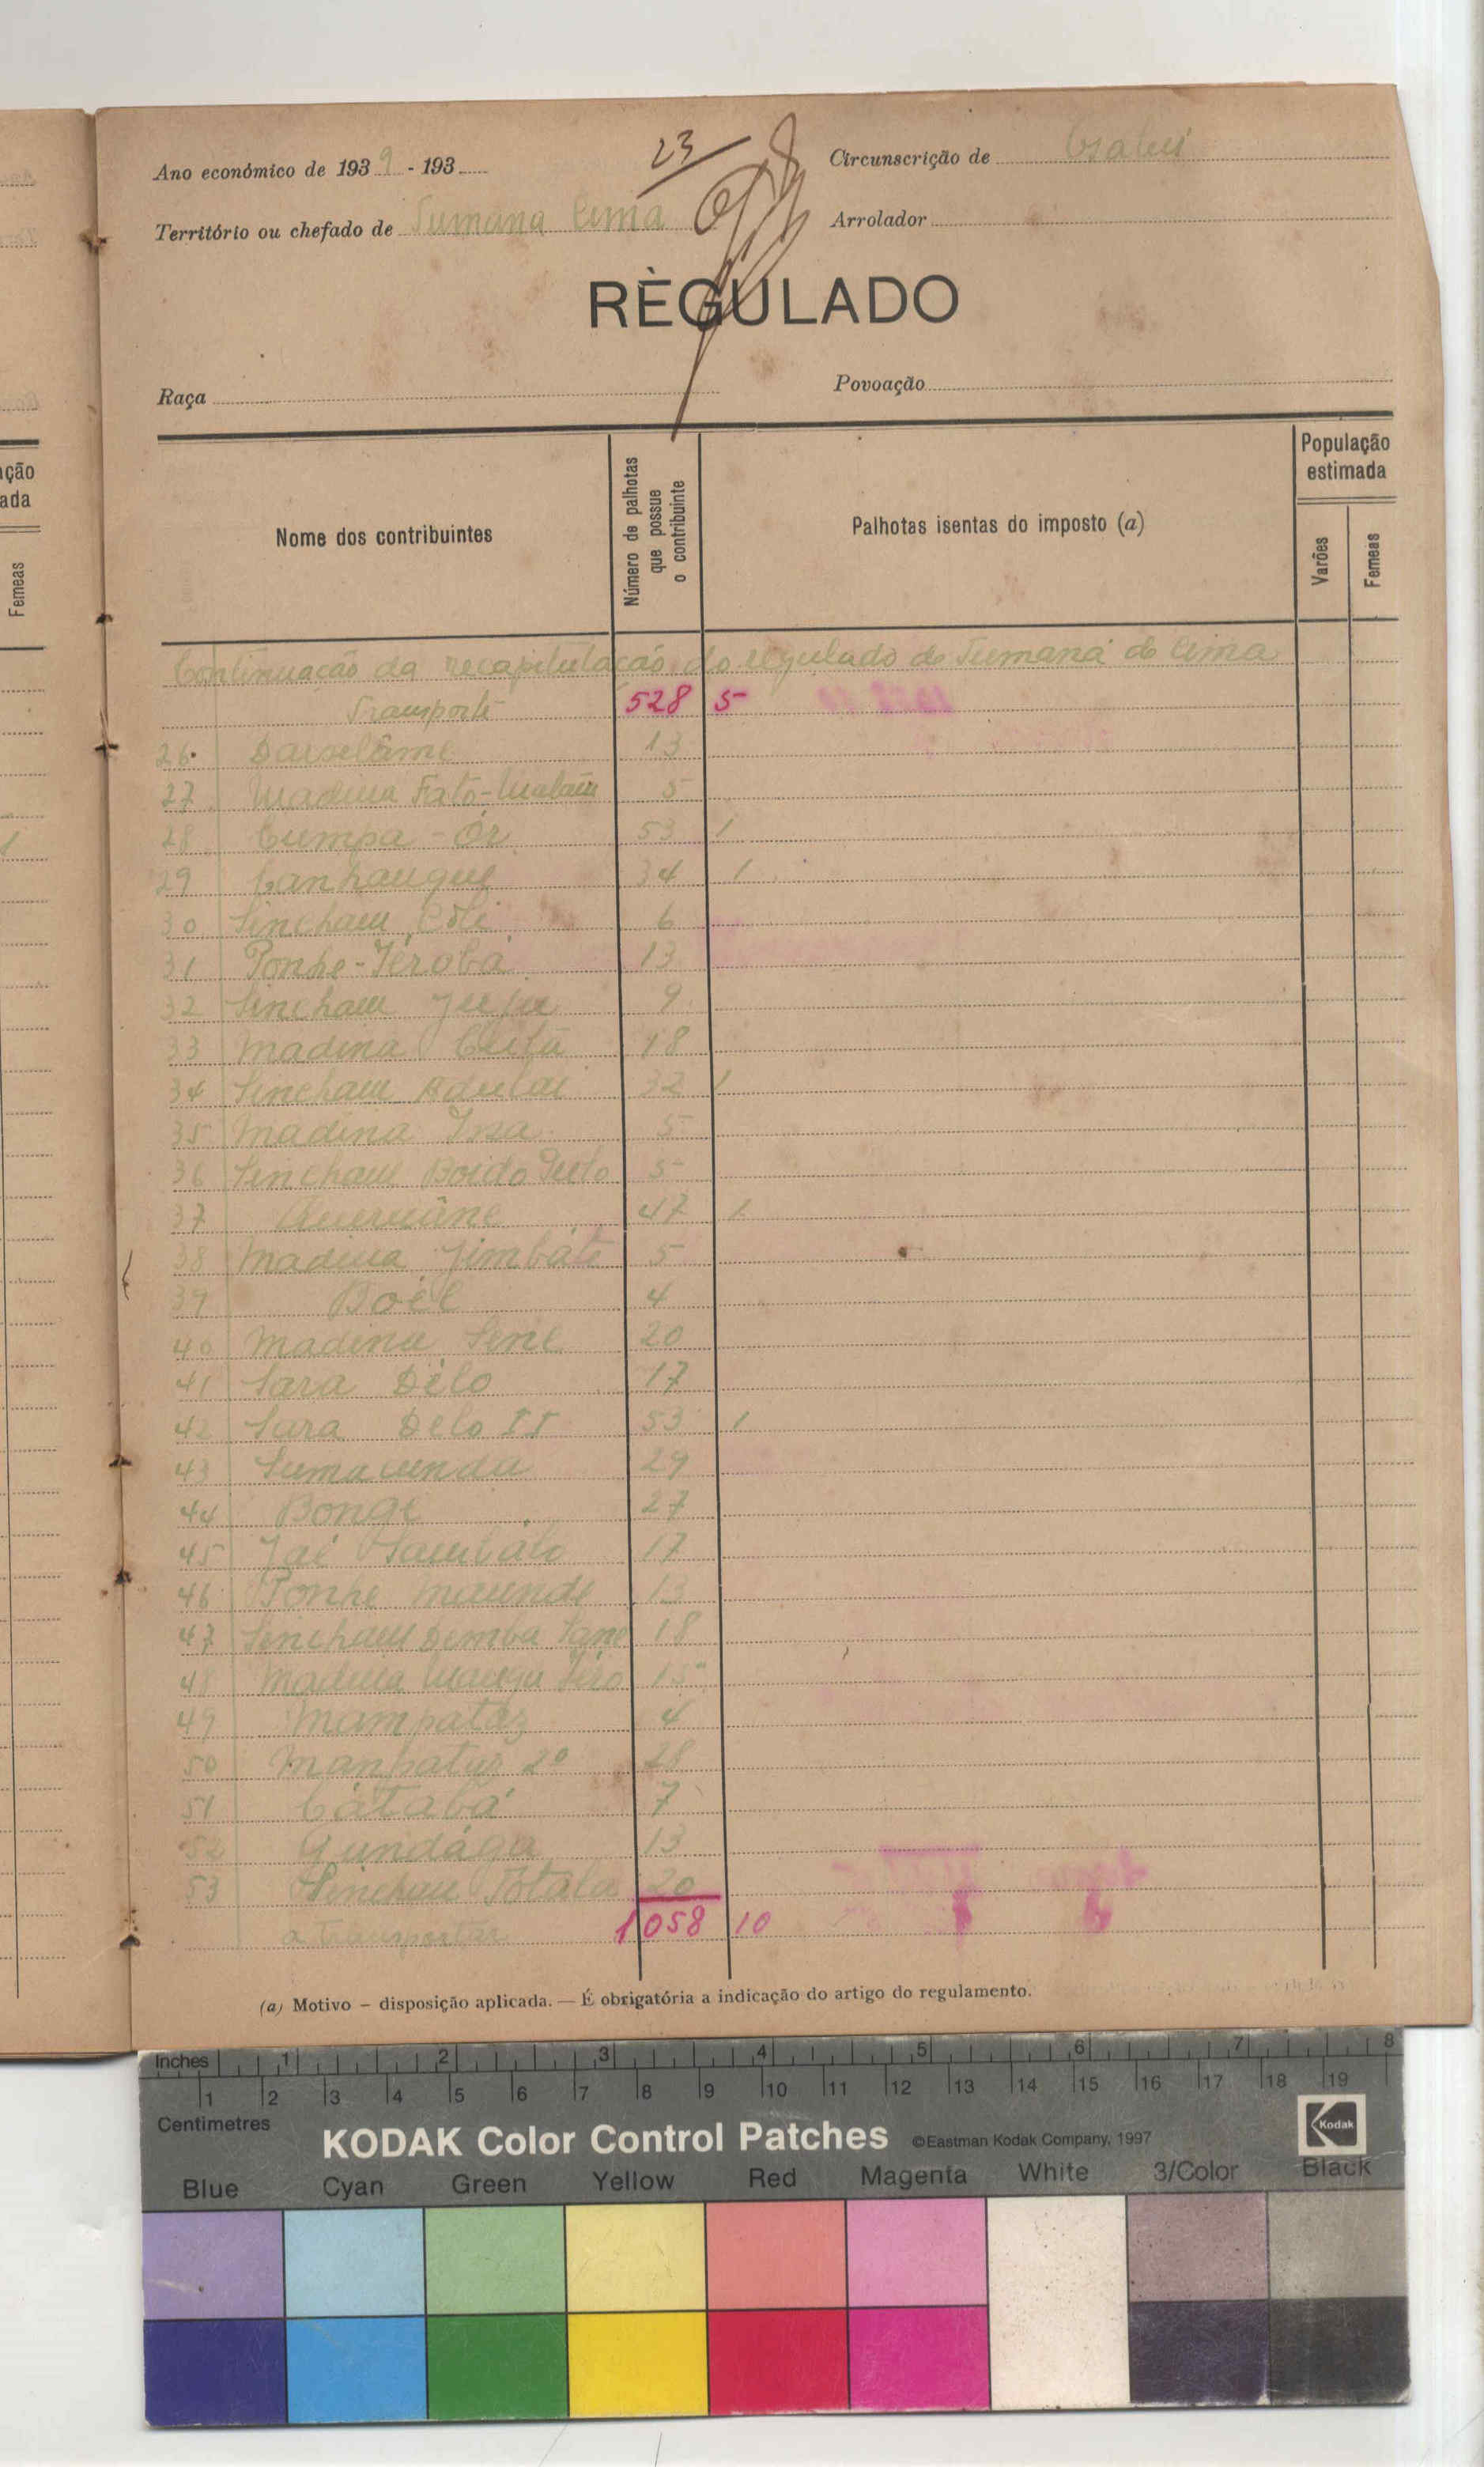 Ano económico de 1939 - 193
23
Circunscrição de Gabú
Território ou chefado de Tumana Cima
Arrolador
RÈGULADO
Raça
Povoação
Nome dos contribuintes
Número de palhotas que possue o contribuinte
Palhotas isentas do imposto (a)
População estimada
Varões
Femeas
Continuação da recapitulação do regulado de Tumaná de Cima
Transporte 528 5
26 13
27 Madina Fato- 5
28 Cumpa-Ór 53 1
29 Canhauque 34 1
30 Sincham Coli 6
31 Ponhe-Téroba 13
32 Sincham Juju 9
33 Madina 18
34 Sincham Adulai 32 1
35 Madina Issa 5
36 Sincham Boido 5
37 47 1
38 Madina Jimbáte 5
39 Boél 4
40 Madina Sene 20
41 Sara Délo 17
42 Sara Delo II 53 1
43 Sumacunda 29
44 Bonge 27
45 17
46 Ponhe Maunde 13
47 Sincham Demba Sane 18
48 Madina 15
49 Mampatáz 4
50 Manpataz 2º 28
51 Cátabá 7
52 Gundága 13
53 Sinchau Totala 20
a transportar 1058 10
(a) Motivo – disposição aplicada. — É obrigatória a indicação do artigo do regulamento.
ção
ada
Femeas
Inches 1 2 3 4 5 6 7 8
1 2 3 4 5 6 7 8 9 10 11 12 13 14 15 16 17 18 19
Centimetres
KODAK Color Control Patches ©Eastman Kodak Company, 1997 Kodak
Blue Cyan Green Yellow Red Magenta White 3/Color Black